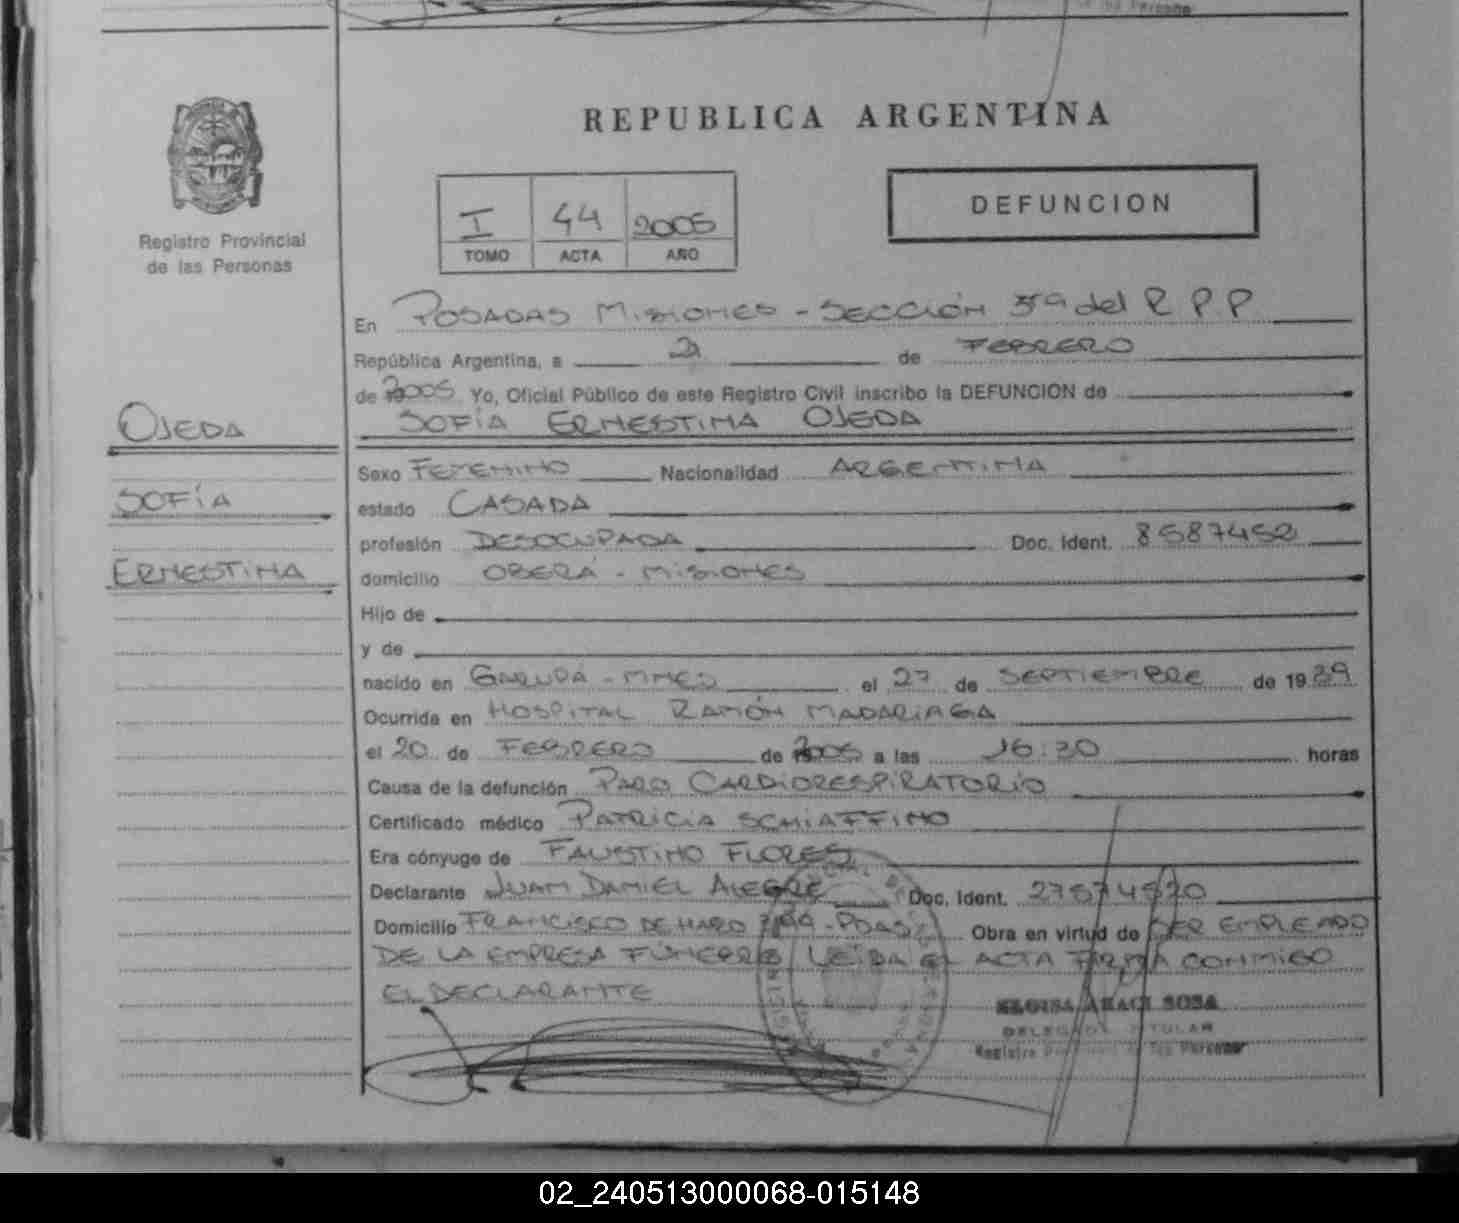 REPUBLICA ARGENTINA
Registro Provincial
de las Personas
I 44 2005
TOMO ACTA AÑO
DEFUNCION
En POSADAS MISIONES - SECCIÓN 5ª del R P P
República Argentina, a 21 de FEBRERO
de 2005 Yo, Oficial Público de este Registro Civil inscribo la DEFUNCION de
SOFÍA ERNESTINA OJEDA
OJEDA
SOFÍA
ERNESTINA
Sexo FEMENINO Nacionalidad ARGENTINA
estado CASADA
profesión DESOCUPADA Doc. Ident. 8587452
domicilio OBERÁ - MISIONES
Hijo de
y de
nacido en GARUPÁ - MNES el 27 de SEPTIEMBRE de 1939
Ocurrida en HOSPITAL RAMÓN MADARIAGA
el 20 de FEBRERO de 2005 a las 16:30 horas
Causa de la defunción PARO CARDIORESPIRATORIO
Certificado médico PATRICIA SCHIAFFINO
Era cónyuge de FAUSTINO FLORES
Declarante JUAN DANIEL ALEGRE Doc. Ident. 27574520
Domicilio FRANCISCO DE HARO - PDAS Obra en virtud de SER EMPLEADO
DE LA EMPRESA FÚNEBRE LEÍDA EL ACTA FIRMA CONMIGO
EL DECLARANTE
ELOISA ARACI SOSA
DELEGADA TITULAR
Registro Provincial de las Personas
02_240513000068-015148